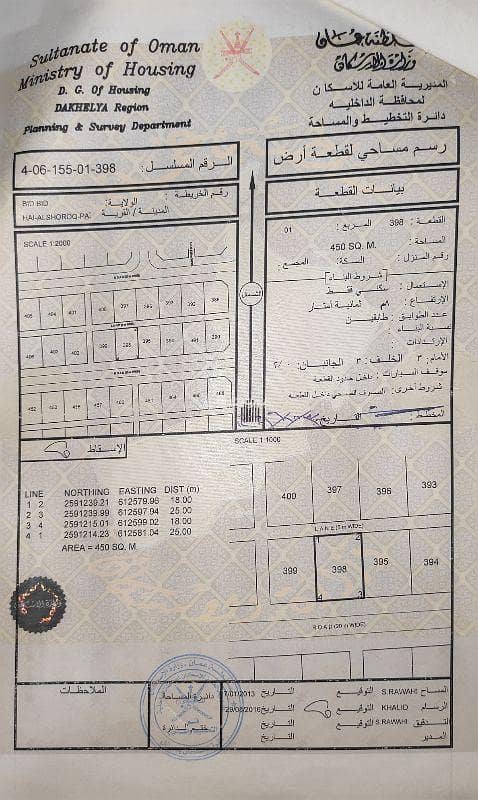 Sultanate of Oman
Ministry of Housing
D. G. Of Housing
DAKHELYA Region
Planning & Survey Department
سلطنة عمان
وزارة الإسكان
المديرية العامة للاسكان
لمحافظة الداخلية
دائرة التخطيط والمساحة
رسم مساحي لقطعة أرض
الرقم المسلسل: 4-06-155-01-398
رقم الخريطة:
الولاية: BID BID
المدينة / القرية: HAI-ALSHOROQ-PA
بيانات القطعة
القطعة: 398 المربع: 01
المساحة: 450 SQ. M.
رقم المنزل: السكة: المجمع:
شروط البناء
الإستعمال: سكني فقط
الإرتفاع: ٨م ثمانية أمتار
عدد الطوابق: طابقين
نسبة البناء:
الإرتدادات:
الأمام: ٣ الخلف: ٣ الجانبان:
موقف السيارات: داخل حدود القطعة
شروط أخرى: الصرف الصحي داخل القطعة
المخطط: التاريخ
SCALE 1:2000
الشمال
SCALE 1:1000
الإسقاط
LINE NORTHING EASTING DIST (m)
1 2 2591239.21 612579.96 18.00
2 3 2591239.99 612597.94 25.00
3 4 2591215.01 612599.02 18.00
4 1 2591214.23 612581.04 25.00
AREA = 450 SQ. M
400 397 396 393
LANE (9 m WIDE)
1 2
399 398 395 394
4 3
ROAD (20 m WIDE)
الملاحظات
دائرة المساحة
ختم الدائرة
المساح S.RAWAHI التوقيع التاريخ 7/01/2013
الرسام KHALID التوقيع التاريخ 29/08/2016
التدقيق S.RAWAHI التوقيع التاريخ
المدير التوقيع التاريخ